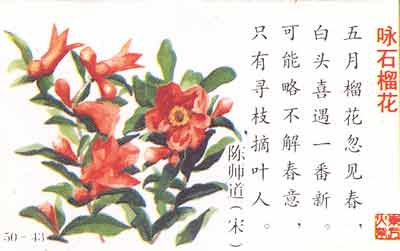 咏石榴花
五月榴花忽见春，
白头喜遇一番新。
可能略不解春意，
只有寻枝摘叶人。
陈师道（宋）
50-43